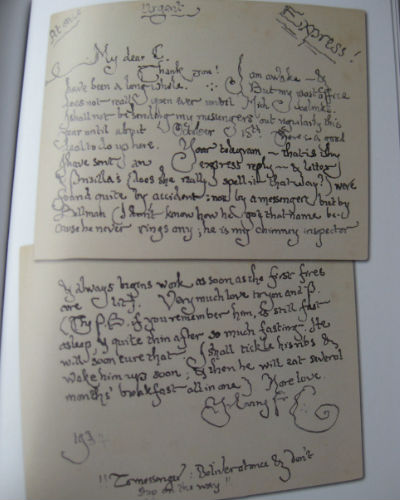 At once Urgent Express!
My dear C.
Thank you! I am awake — &
have been a long while. But my post office
does not really open ever until Michaelmas.
I shall not be sending my messengers out regularly this
year until about October 15th. There is a good
deal to do up here. Your telegram — that is why
I have sent an express reply — & letter
& Priscilla's (does she really spell it that way?) were
found quite by accident: not by a messenger but by
Bellman (I don't know how he got that name be-
cause he never rings any; he is my chimney inspector
& always begins work as soon as the first fires
are lit). Very much love to you and P.
(The P.B. if you remember him, is still fast
asleep, & quite thin after so much fasting. He
will soon cure that. I shall tickle his ribs &
wake him up soon & then he will eat several
months' breakfast all in one) More love
Yr loving Fr. C.
193
!!To messenger: Deliver at once & don't
stop on the way!!